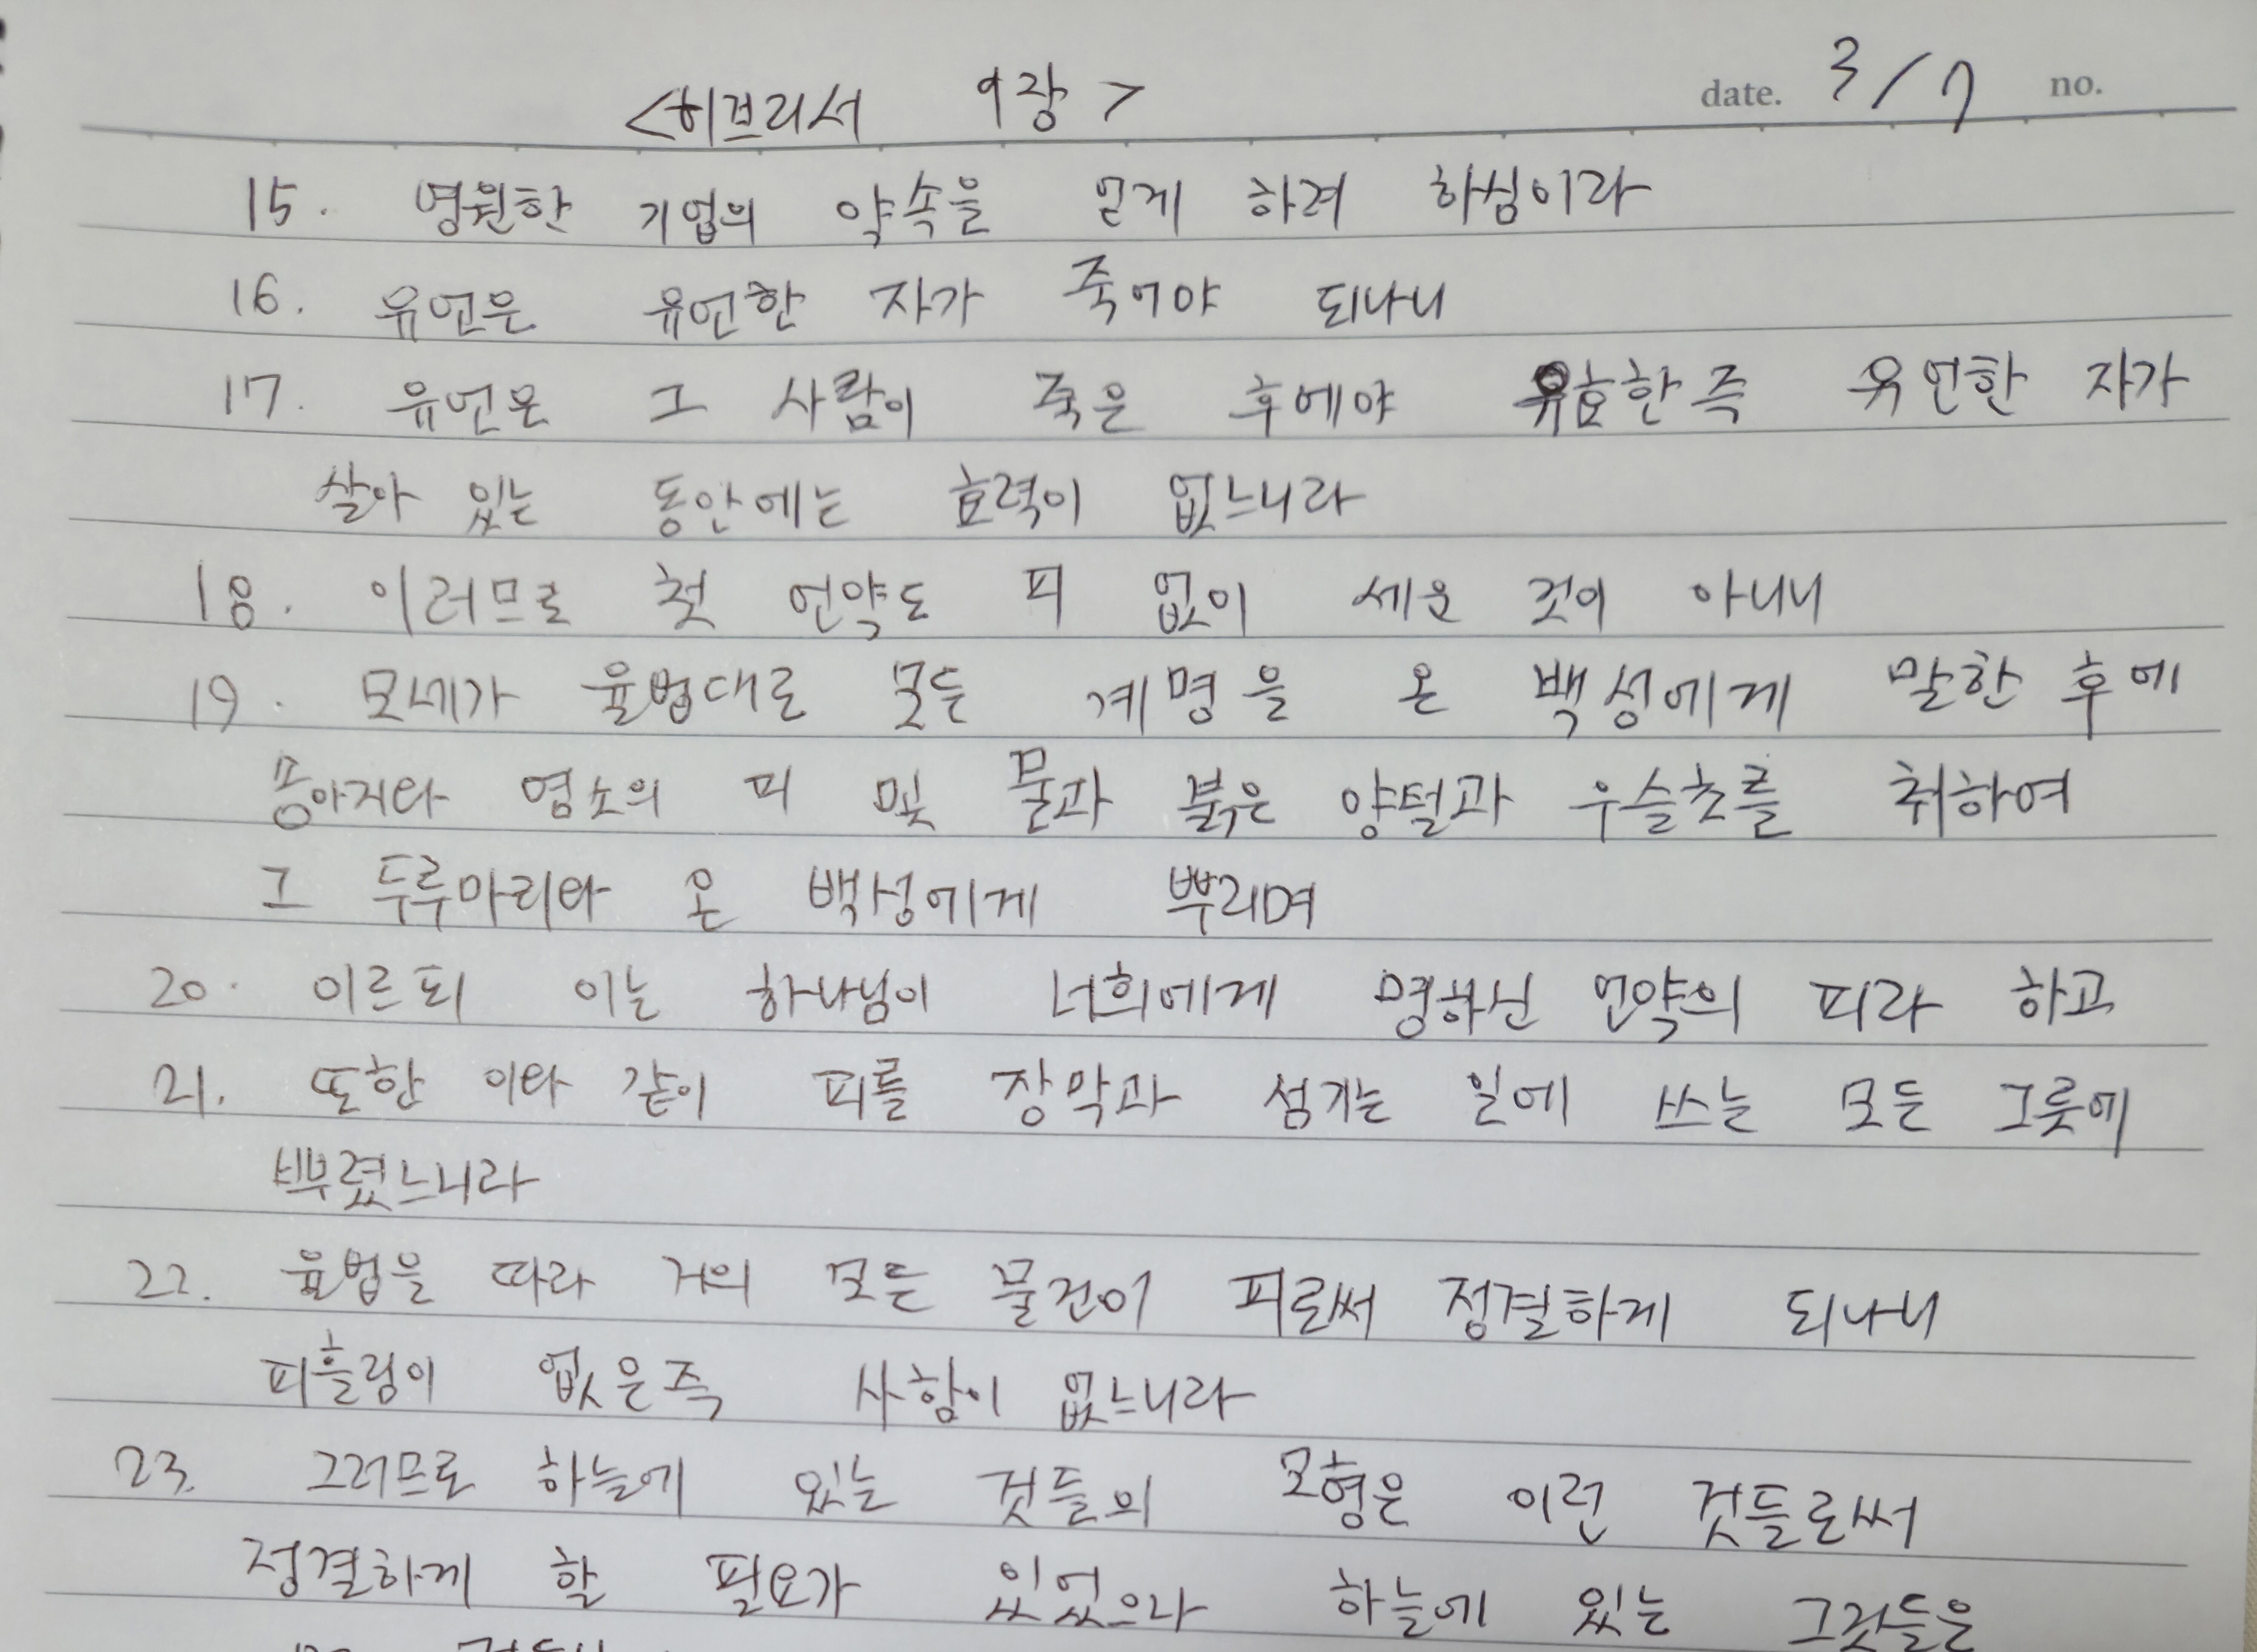 <히브리서 9장>
date. 3/7 no.
15. 영원한 기업의 약속을 얻게 하려 하심이라
16. 유언은 유언한 자가 죽어야 되나니
17. 유언은 그 사람이 죽은 후에야 유효한즉 유언한 자가
살아 있는 동안에는 효력이 없느니라
18. 이러므로 첫 언약도 피 없이 세운 것이 아니니
19. 모세가 율법대로 모든 계명을 온 백성에게 말한 후에
송아지와 염소의 피 및 물과 붉은 양털과 우슬초를 취하여
그 두루마리와 온 백성에게 뿌리며
20. 이르되 이는 하나님이 너희에게 명하신 언약의 피라 하고
21. 또한 이와 같이 피를 장막과 섬기는 일에 쓰는 모든 그릇에
뿌렸느니라
22. 율법을 따라 거의 모든 물건이 피로써 정결하게 되나니
피흘림이 없은즉 사함이 없느니라
23. 그러므로 하늘에 있는 것들의 모형은 이런 것들로써
정결하게 할 필요가 있었으나 하늘에 있는 그것들은